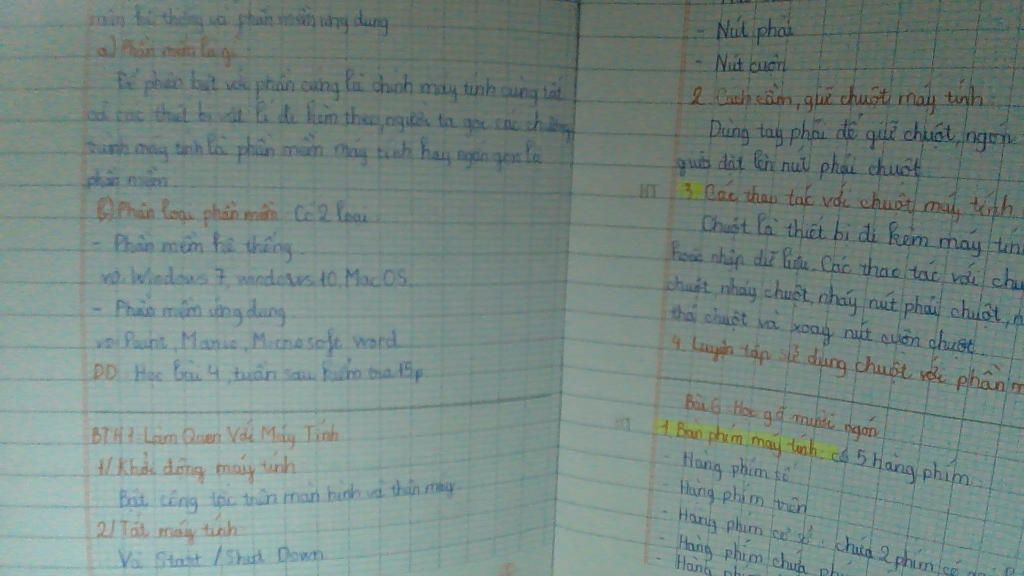 mềm hệ thống và phần mềm ứng dụng
a) Phần mềm là gì
Để phân biệt với phần cứng là chính máy tính cùng tất
cả các thiết bị vật lí đi kèm theo, người ta gọi các chương
trình máy tính là phần mềm máy tính hay ngắn gọn là
phần mềm.
b) Phân loại phần mềm: Có 2 loại
- Phần mềm hệ thống
VD: Windows 7, windows 10, MacOS.
- Phần mềm ứng dụng
VD: Paint, Word
DD: Học bài 4, tuần sau kiểm tra 15p
BTH1: Làm Quen Với Máy Tính
1/ Khởi động máy tính
Bật công tắc trên màn hình và thân máy
2/ Tắt máy tính
Và Start / Shut Down
- Nút phải
- Nút cuộn
2. Cách cầm, giữ chuột máy tính
Dùng tay phải để giữ chuột, ngón
giữa đặt lên nút phải chuột
3. Các thao tác với chuột máy tính
Chuột là thiết bị đi kèm máy tính
hoặc nhập dữ liệu. Các thao tác với
chuột, nháy chuột, nháy nút phải chuột,
thả chuột và xoay nút cuộn chuột.
4. Luyện tập sử dụng chuột với phần
Bài 6: Học gõ mười ngón
1. Bàn phím máy tính: có 5 hàng phím
- Hàng phím số
- Hàng phím trên
- Hàng phím cơ sở: chứa 2 phím có
- Hàng phím chứa
- Hàng phím